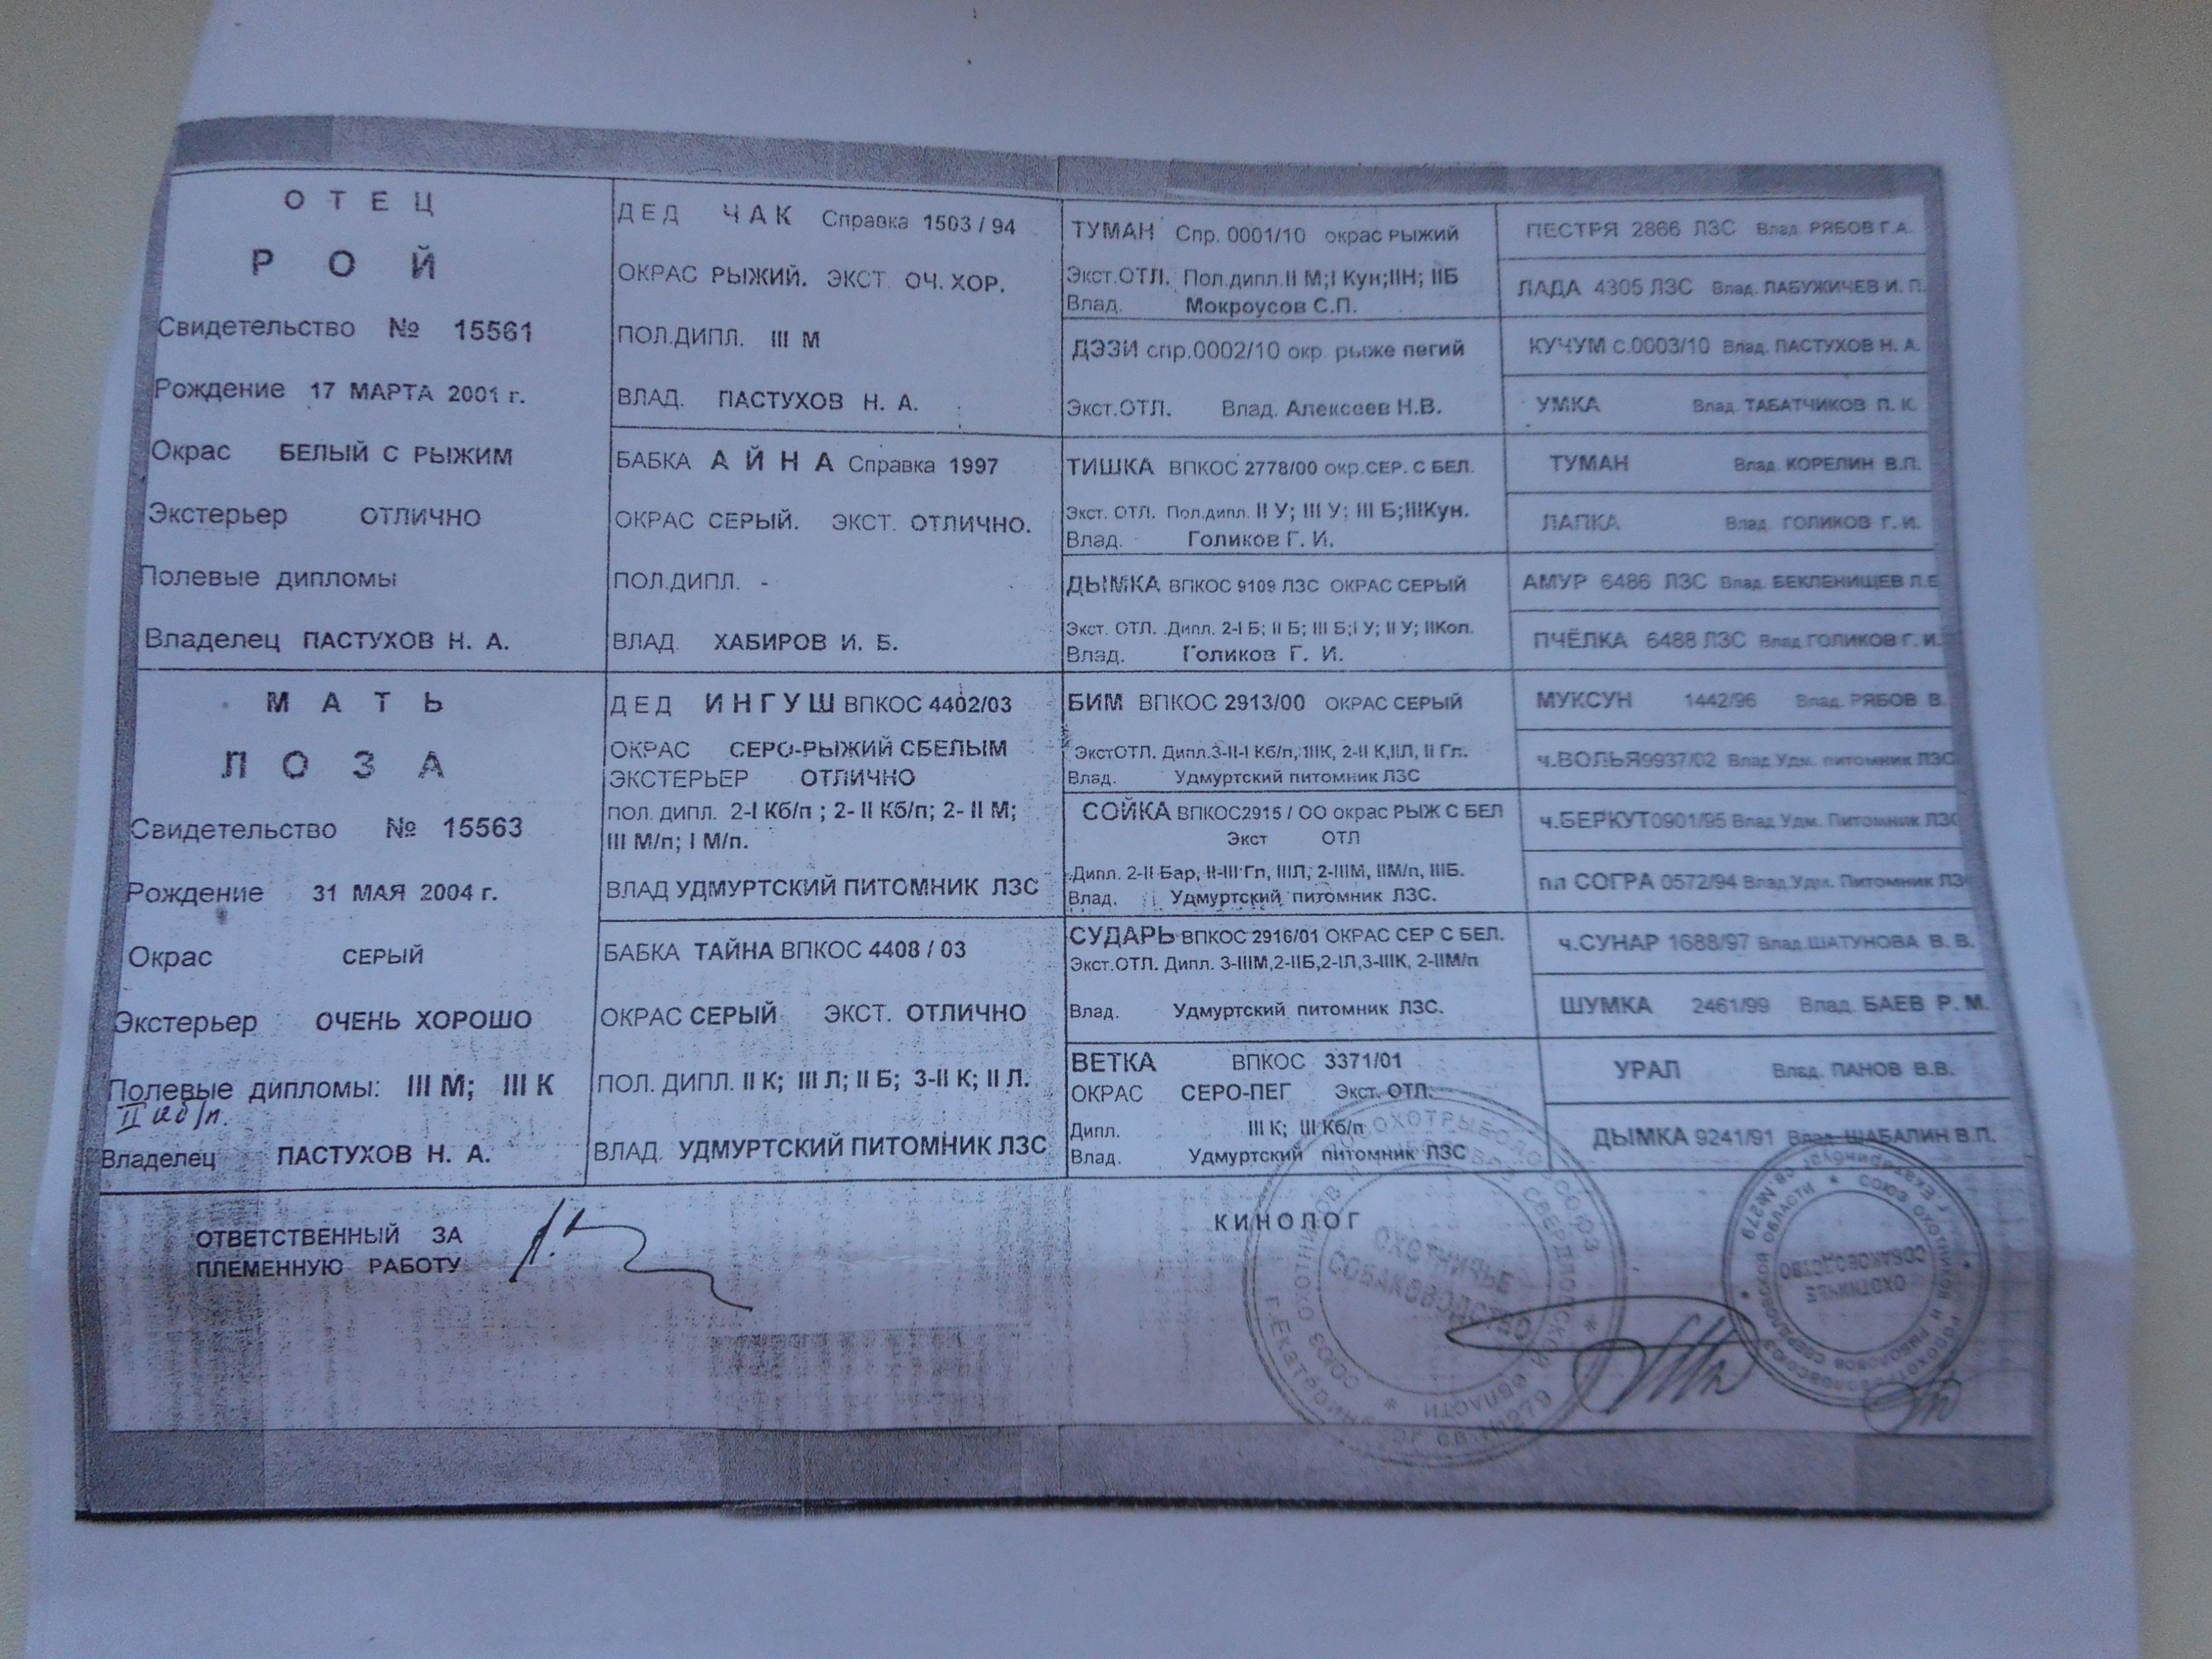 ОТЕЦ
РОЙ
Свидетельство № 15561
Рождение 17 МАРТА 2001 г.
Окрас БЕЛЫЙ С РЫЖИМ
Экстерьер ОТЛИЧНО
Полевые дипломы
Владелец ПАСТУХОВ Н. А.
МАТЬ
ЛОЗА
Свидетельство № 15563
Рождение 31 МАЯ 2004 г.
Окрас СЕРЫЙ
Экстерьер ОЧЕНЬ ХОРОШО
Полевые дипломы: III М; III К
Владелец ПАСТУХОВ Н. А.
ДЕД ЧАК Справка 1503 / 94
ОКРАС РЫЖИЙ. ЭКСТ ОЧ. ХОР.
ПОЛ.ДИПЛ. III М
ВЛАД. ПАСТУХОВ Н. А.
БАБКА АЙНА Справка 1997
ОКРАС СЕРЫЙ. ЭКСТ. ОТЛИЧНО.
ПОЛ.ДИПЛ. -
ВЛАД. ХАБИРОВ И. Б.
ДЕД ИНГУШ ВПКОС 4402/03
ОКРАС СЕРО-РЫЖИЙ СБЕЛЫМ
ЭКСТЕРЬЕР ОТЛИЧНО
ПОЛ. ДИПЛ. 2-I Кб/п ; 2- II Кб/п; 2- II М;
III М/п; I М/п.
ВЛАД УДМУРТСКИЙ ПИТОМНИК ЛЗС
БАБКА ТАЙНА ВПКОС 4408 / 03
ОКРАС СЕРЫЙ ЭКСТ. ОТЛИЧНО
ПОЛ. ДИПЛ. II К; III Л; II Б; 3-II К; II Л.
ВЛАД. УДМУРТСКИЙ ПИТОМНИК ЛЗС
ТУМАН Спр. 0001/10 окрас РЫЖИЙ
Экст.ОТЛ. Пол.дипл.II М;I Кун;IIН; IIБ
Влад. Мокроусов С.П.
ДЭЗИ спр.0002/10 окр. рыже пегий
Экст.ОТЛ. Влад. Алексеев Н.В.
ТИШКА ВПКОС 2778/00 окр.СЕР. С БЕЛ.
Экст. ОТЛ. Пол.дипл. II У; III У; III Б;IIIКун.
Влад. Голиков Г. И.
ДЫМКА ВПКОС 9109 ЛЗС ОКРАС СЕРЫЙ
Экст. ОТЛ. .Дипл. 2-I Б; II Б; III Б;I У; II У; IIКол.
Влад. Голиков Г. И.
БИМ ВПКОС 2913/00 ОКРАС СЕРЫЙ
ЭкстОТЛ. Дипл.3-II-I Кб/п, IIIК, 2-II К,IIЛ, II Гл.
Влад. Удмуртский питомник ЛЗС
СОЙКА ВПКОС2915 / ОО окрас РЫЖ С БЕЛ
Экст ОТЛ
Дипл. 2-II Бар, II-III Гл, IIIЛ, 2-IIIМ, IIМ/п, IIIБ.
Влад. Удмуртский питомник ЛЗС.
СУДАРЬ ВПКОС 2916/01 ОКРАС СЕР С БЕЛ.
Экст.ОТЛ. Дипл. 3-IIIМ,2-IIБ,2-IЛ,3-IIIК, 2-IIМ/п
Влад. Удмуртский питомник ЛЗС.
ВЕТКА ВПКОС 3371/01
ОКРАС СЕРО-ПЕГ Экст. ОТЛ.
Дипл. III К; III Кб/п
Влад. Удмуртский питомник ЛЗС
ПЕСТРЯ 2866 ЛЗС Влад. РЯБОВ Г.А.
ЛАДА 4305 ЛЗС Влад. ЛАБУЖИЧЕВ И. П.
КУЧУМ с.0003/10 Влад. ПАСТУХОВ Н. А.
УМКА Влад. ТАБАТЧИКОВ П. К.
ТУМАН Влад. КОРЕЛИН В.П.
ЛАПКА Влад. ГОЛИКОВ Г. И.
АМУР 6486 ЛЗС Влад. БЕКЛЕНИЩЕВ Л.Е
ПЧЁЛКА 6488 ЛЗС Влад.ГОЛИКОВ Г. И.
МУКСУН 1442/96 Влад. РЯБОВ В.
ч.ВОЛЬЯ9937/02 Влад Удм. питомник ЛЗС
ч.БЕРКУТ0901/95 Влад Удм. Питомник ЛЗС
пл СОГРА 0572/94 Влад.Удм. Питомник ЛЗС
ч.СУНАР 1688/97 Влад.ШАТУНОВА В. В.
ШУМКА 2461/99 Влад. БАЕВ Р. М.
УРАЛ Влад. ПАНОВ В.В.
ДЫМКА 9241/91 Влад. ШАБАЛИН В.П.
ОТВЕТСТВЕННЫЙ ЗА
ПЛЕМЕННУЮ РАБОТУ
КИНОЛОГ
ОХОТНИЧЬЕ
СОБАКОВОДСТВО
ОХОТНИЧЬЕ
СОБАКОВОДСТВО